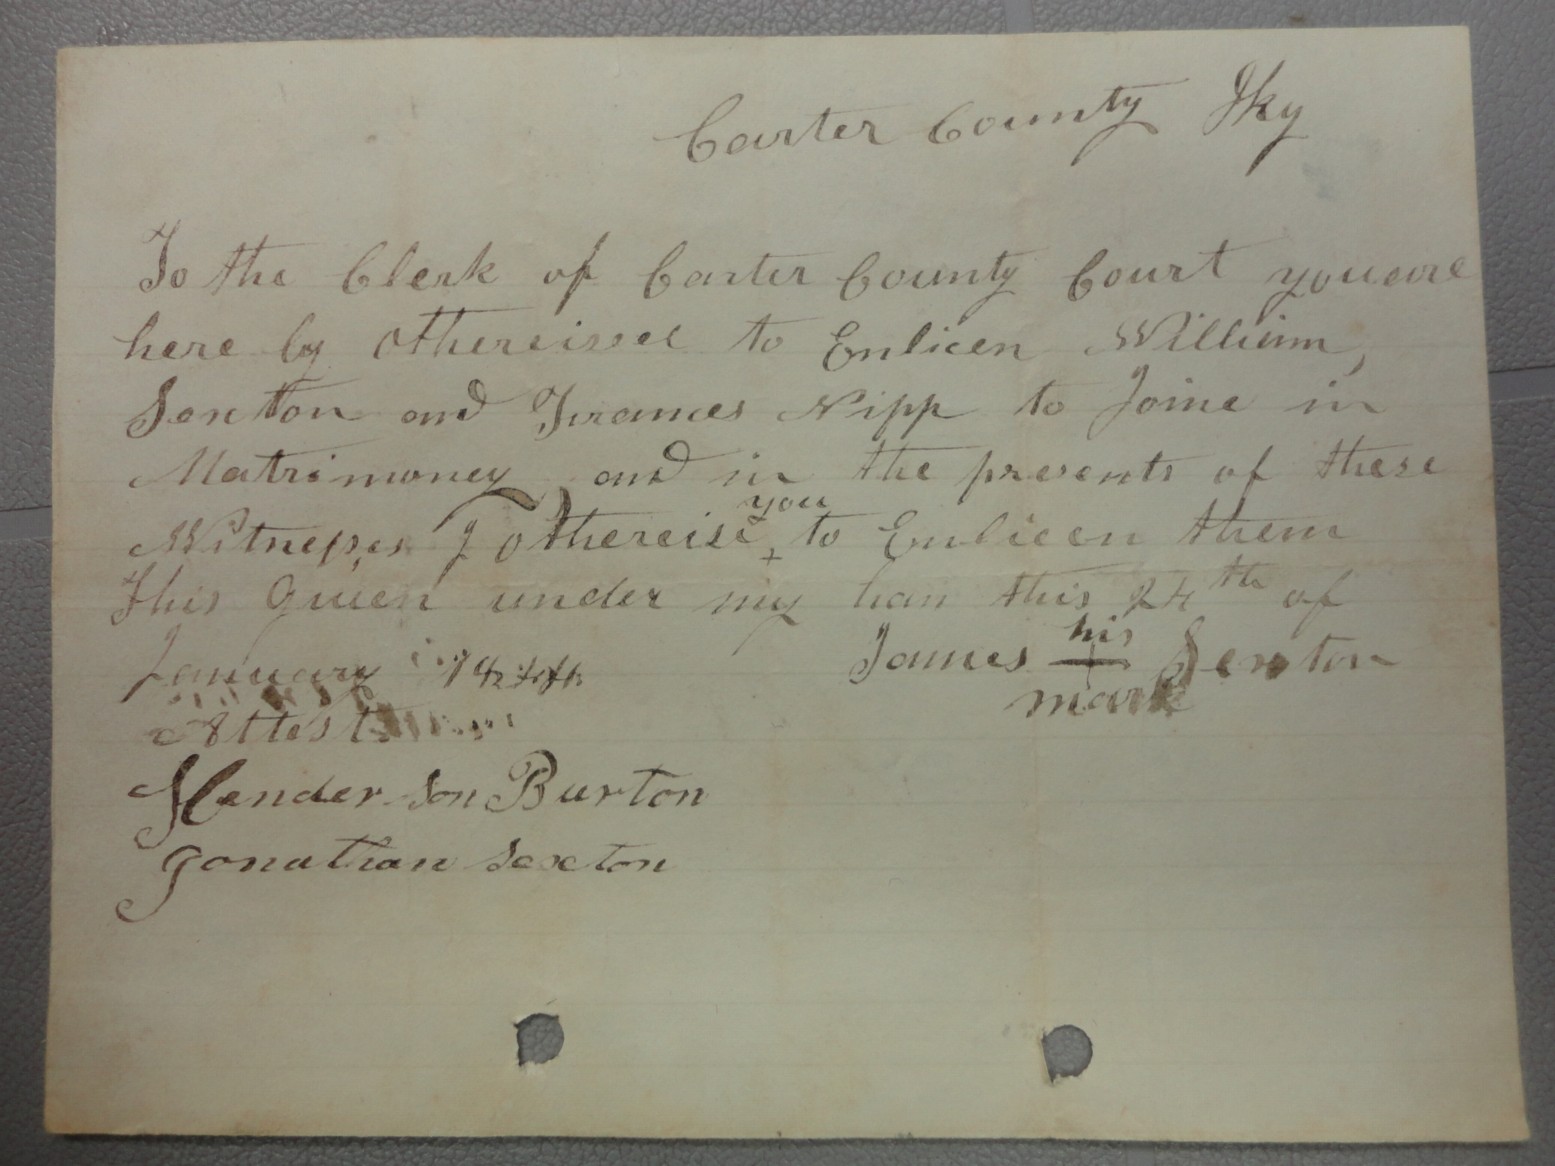 Carter County Ky
To the Clerk of Carter County Court you are
here by othereised to Enlicen William,
Sexton and Frances Nipp to Joine in
Matrimoney and in the presents of these
you
Witnesses I othereise + to Enlicen them
This Given under my han this 24th of
January
James his Sexton
mark
Attest
Henderson Burton
Jonathan Sexton